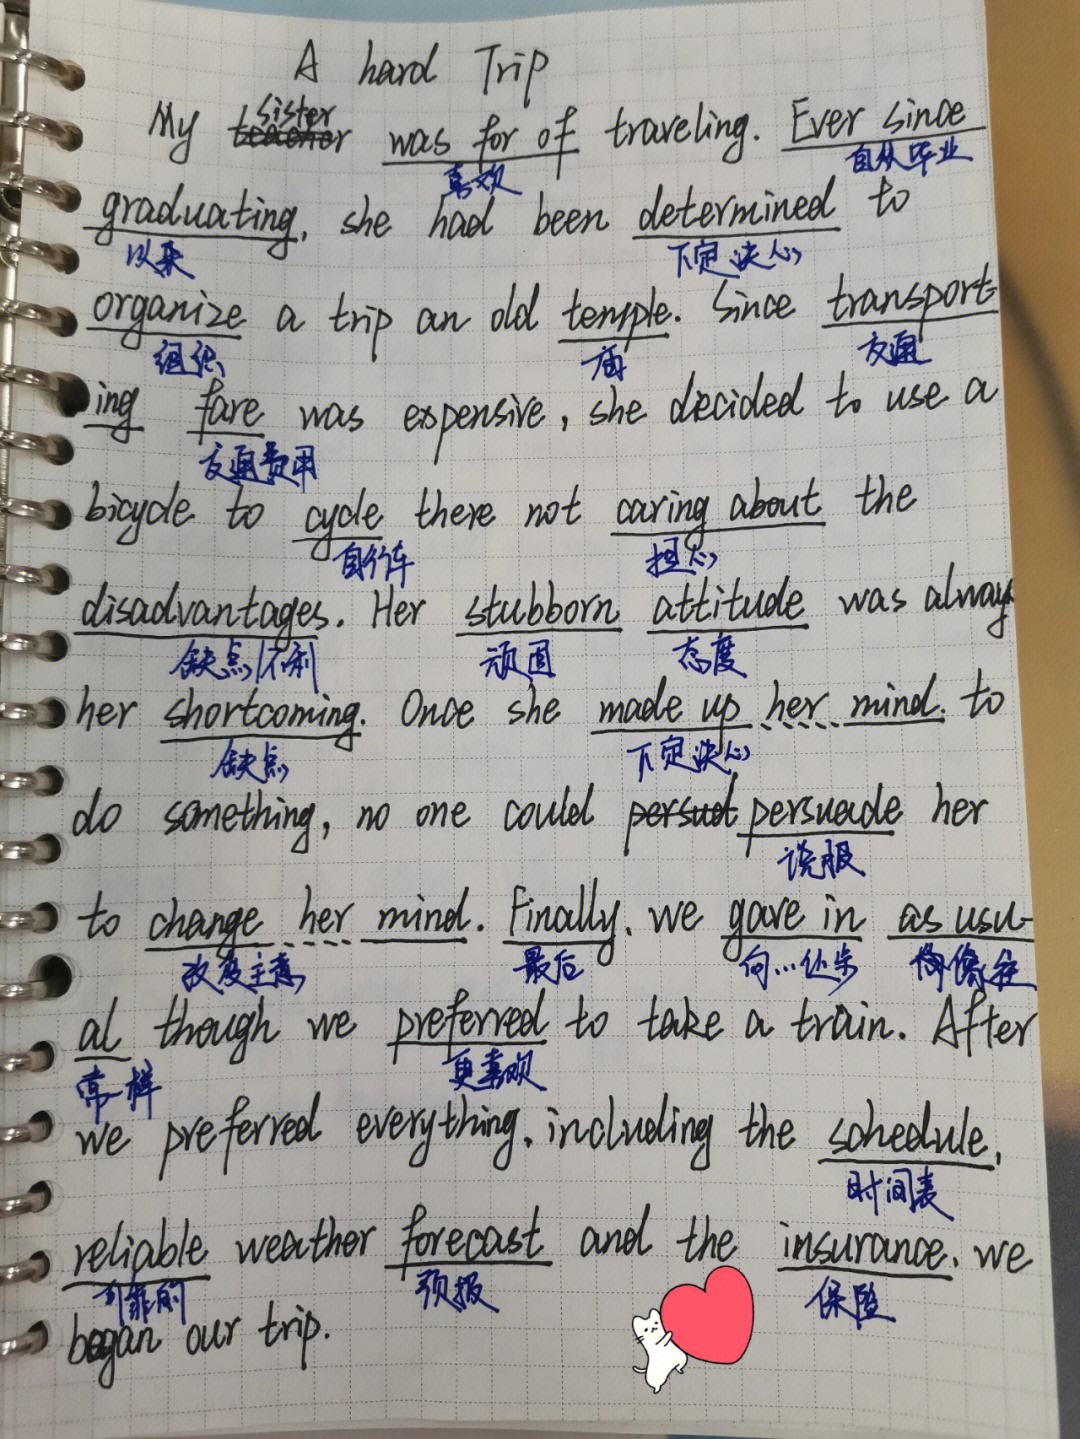 A hard Trip
My sister was for of traveling. Ever since
喜欢 自从毕业
graduating, she had been determined to
以来 下定决心
organize a trip an old temple. Since transport-
组织 庙 交通
ing fare was expensive, she decided to use a
交通费用
bicycle to cycle there not caring about the
自行车 担心
disadvantages. Her stubborn attitude was alway
缺点/不利 顽固 态度
her shortcoming. Once she made up her mind to
缺点 下定决心
do something, no one could persuade her
说服
to change her mind. Finally, we gave in as usu-
改变主意 最后 向…让步 像往
al though we preferred to take a train. After
常一样 更喜欢
we preferred everything, including the schedule,
时间表
reliable weather forecast and the insurance, we
可靠的 预报 保险
began our trip.